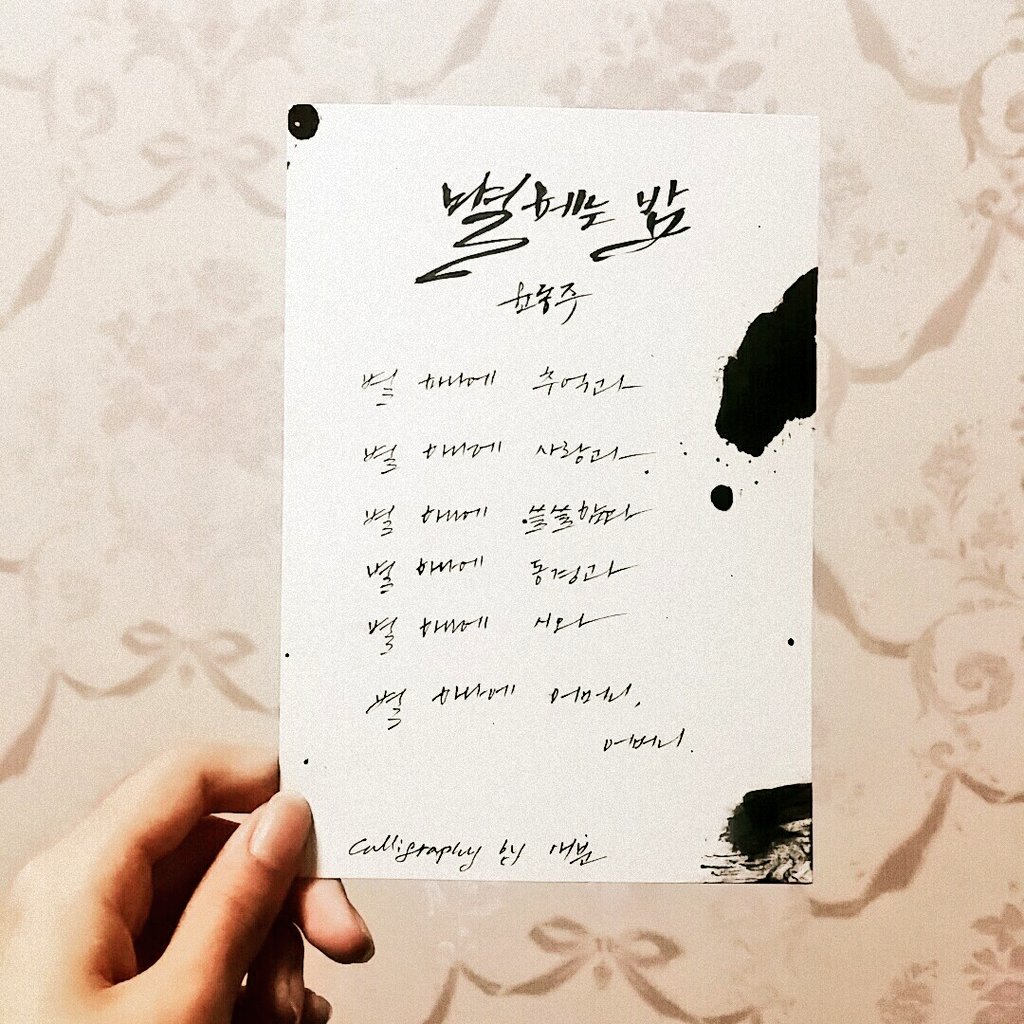 별 헤는 밤
윤동주
별 하나에 추억과
별 하나에 사랑과
별 하나에 쓸쓸함과
별 하나에 동경과
별 하나에 시와
별 하나에 어머니,
어머니.
Calligraphy by